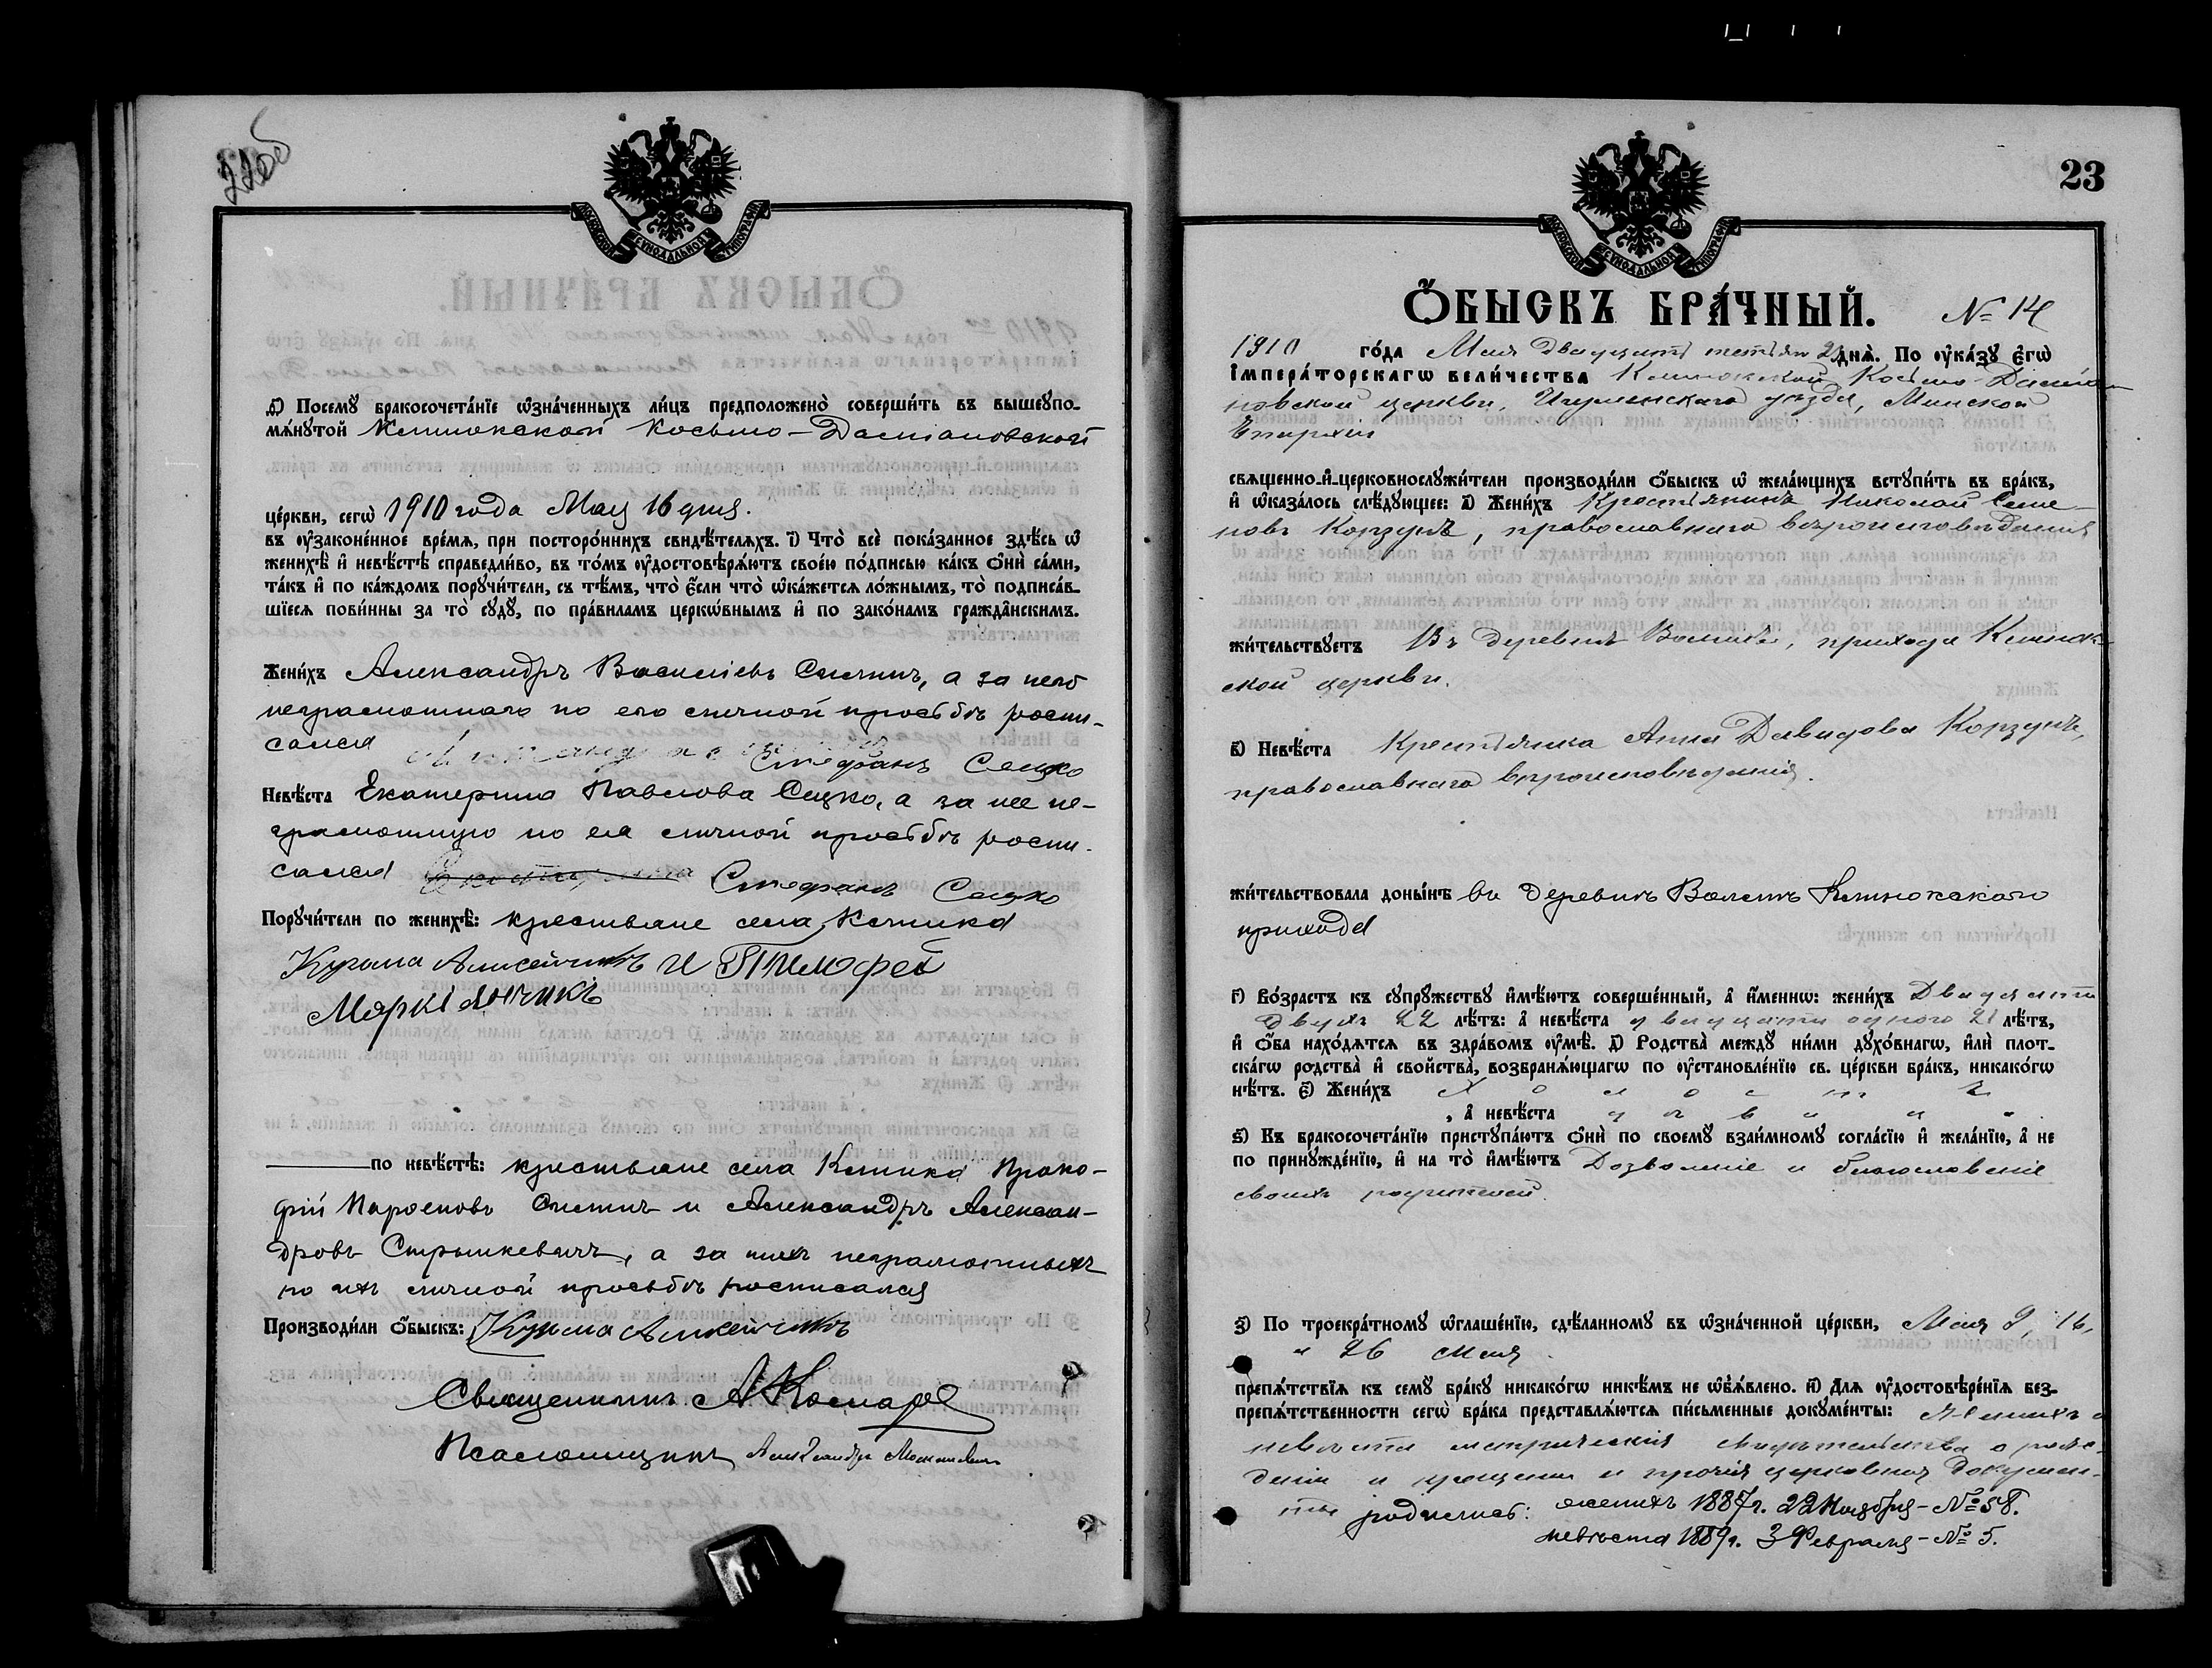 МОСКОВСКОЙ СѴНОДАЛЬНОЙ ТИПОГРАФІИ
д҃) Посемꙋ̀ бракосочета́нїе ѡ҆зна́ченныхъ ли́цъ предположено̀ соверши́ть въ вышеꙋпо-
мѧ́нꙋтой Клинокской Косьмо-Даміановской
це́ркви, сегѡ̀ 1910 года Мая 16 дня.
въ ᲂу҆зако́ненное вре́мѧ, при посторо́ннихъ свидѣ́телѧхъ. і҃) Что̀ всѐ пока́занное здѣ́сь ѡ҆
женихѣ̀ и҆ невѣ́стѣ справедли́во, въ то́мъ ᲂу҆достовѣрѧ́ютъ свое́ю по́дписью ка́къ ѻ҆нѝ са́ми,
та́къ и҆ по ка́ждомъ порꙋчи́тели, съ тѣ́мъ, что̀ є҆́сли что̀ ѡ҆ка́жетсѧ ло́жнымъ, то̀ подписа́в-
шїесѧ пови́нны за то̀ сꙋдꙋ̀, по пра́виламъ церко́внымъ и҆ по зако́намъ гражда́нскимъ.
Жени́хъ Александръ Васильевъ Слепичъ, а за него
неграмотнаго по его личной просьбѣ роспи-
сался Стефанъ Сецко
Невѣ́ста Екатерина Павлова Сецко, а за нее не-
грамотную по ея личной просьбѣ роспи-
сался Стефанъ Сецко
Порꙋчи́тели по женихѣ̀: крестьяне села Клинка
Кузьма Алисейчикъ и Тимофей
Маркіянчикъ
по невѣ́стѣ: крестьяне села Клинка Проко-
фій и Александръ Алексан-
дровъ Стрышкевичъ, а за нихъ неграмотныхъ
по ихъ личной просьбѣ росписался
Производи́ли ѻ҆́быскъ: Кузьма Алисейчикъ
Священникъ А. Комаръ
Псаломщикъ Александръ
23
МОСКОВСКОЙ СѴНОДАЛЬНОЙ ТИПОГРАФІИ
Ѻ҆́БЫСКЪ БРА́ЧНЫЙ. № 14
1910 го́да Мая двадцать третьяго дня̀. По ᲂу҆ка́зꙋ Є҆гѡ̀
І҆мпера́торскагѡ вели́чества Клинокской Косьмо-Даміа-
новской церкви, Игуменскаго уѣзда, Минской
Епархіи
свѧще́нно-и҆-церковнослꙋжи́тели производи́ли ѻ҆́быскъ ѡ҆ жела́ющихъ встꙋпи́ть въ бра́къ,
и҆ ѡ҆каза́лось слѣ́дꙋющее: а҃) Жени́хъ Крестьянинъ Николай Семе-
новъ Корзунъ, православнаго вѣроисповѣданія
жи́тельствꙋетъ въ деревнѣ Волитѣ, прихода Клинок-
ской церкви.
в҃) Невѣ́ста Крестьянка Анна Давидова Корзунъ,
православнаго вѣроисповѣданія.
жи́тельствовала доны́нѣ въ деревнѣ Волитѣ Клинокскаго
прихода
г҃) Во́зрастъ къ сꙋпрꙋ́жествꙋ и҆мѣ́ютъ соверше́нный, а҆ и҆́меннѡ: жени́хъ двадцати
двухъ 22 лѣ́тъ: а҆ невѣ́ста двадцати одного 21 лѣ́тъ,
и҆ ѻ҆́ба нахо́дѧтсѧ въ здра́вомъ ᲂу҆мѣ̀. д҃) Родства̀ междꙋ ни́ми дꙋхо́внагѡ, и҆лѝ плот-
ска́гѡ родства̀ и҆ сво́йства, возбранѧ́ющагѡ по ᲂу҆становле́нїю св. це́ркви бра́къ, никако́гѡ
нѣ́тъ. є҃) Жени́хъ холостъ
, а҆ невѣ́ста дѣвица
ѕ҃) Къ бракосочета́нїю пристꙋпа́ютъ ѻ҆нѝ по своемꙋ̀ взаи́мномꙋ согла́сїю и҆ жела́нїю, а҆ не
по принꙋжде́нїю, и҆ на то̀ и҆мѣ́ютъ дозволеніе и благословеніе
своихъ родителей.
з҃) По троекра́тномꙋ ѡ҆глаше́нїю, сдѣ́ланномꙋ въ ѡ҆зна́ченной це́ркви, Мая 9, 16,
и 26 Мая.
препѧ́тствїѧ къ семꙋ̀ бра́кꙋ никако́гѡ никѣ́мъ не ѡ҆б̾ѧ́влено. и҃) Длѧ̀ ᲂу҆достовѣре́нїѧ без-
препѧ́тственности сегѡ̀ бра́ка представлѧ́ютсѧ пи́сьменные докꙋме́нты: жениха и
невѣсты метрическія свидѣтельства о рож-
деніи и крещеніи и прочія церковныя докумен-
ты родились: женихъ 1887 г. 22 Ноября - № 58.
невѣста 1889 г. 3 Февраля - № 5.